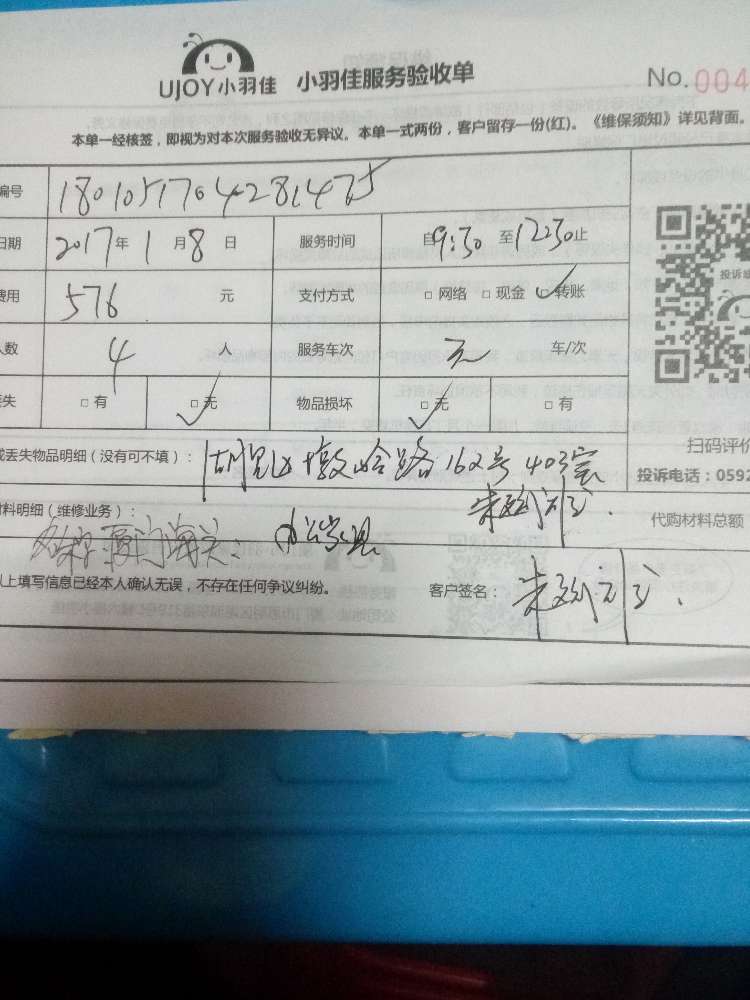 UJOY小羽佳 小羽佳服务验收单 No.004
本单一经核签，即视为对本次服务验收无异议。本单一式两份，客户留存一份(红)。《维保须知》详见背面。
编号 1801051704281475
日期 2017年1月8日 服务时间 自9:30至12:30止
费用 576 元 支付方式 □网络 □现金 ✓转账
人数 4 人 服务车次 无 车/次
丢失 □有 □无 ✓ 物品损坏 □无 ✓ □有
投诉
或丢失物品明细（没有可不填）： 湖里区墩哈路162号403室
扫码评价
投诉电话：0592
材料明细（维修业务）：
代购材料总额
厦门海关
以上填写信息已经本人确认无误，不存在任何争议纠纷。 客户签名：